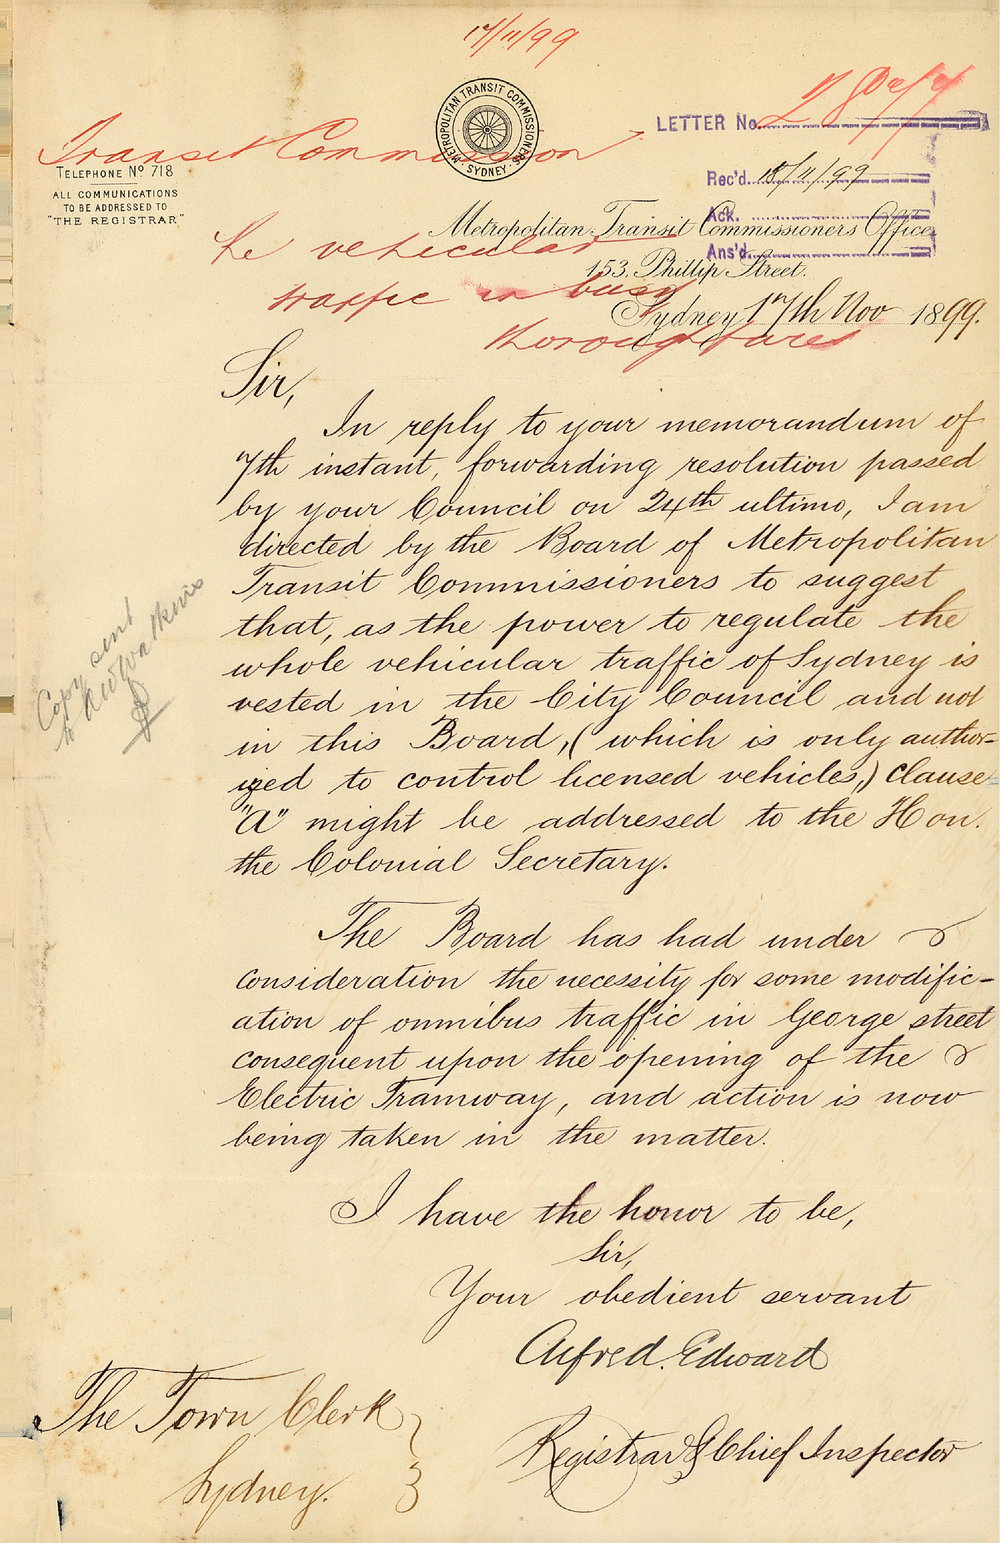 17/11/99
METROPOLITAN TRANSIT COMMISSIONERS
SYDNEY
LETTER No.
Transit Commission
TELEPHONE Nº 718
ALL COMMUNICATIONS
TO BE ADDRESSED TO
"THE REGISTRAR"
Rec'd. 18/11/99
Ack.
Metropolitan Transit Commissioners Office,
Ans'd.
re vehicular
153, Phillip Street.
traffic in busy
Sydney 17th Nov 1899.
thoroughfares
Sir,
In reply to your memorandum of
7th instant, forwarding resolution passed
by your Council on 24th ultimo, I am
directed by the Board of Metropolitan
Transit Commissioners to suggest
that, as the power to regulate the
whole vehicular traffic of Sydney is
vested in the City Council and not
in this Board, (which is only author=
ized to control licensed vehicles,) clause
"A" might be addressed to the Hon.
the Colonial Secretary.
Copy sent
to
The Board has had under
consideration the necessity for some modific-
ation of omnibus traffic in George street
consequent upon the opening of the
Electric Tramway, and action is now
being taken in the matter.
I have the honor to be,
Sir,
Your obedient servant
Alfred. Edward
Registrar & Chief Inspector
The Town Clerk
Sydney.